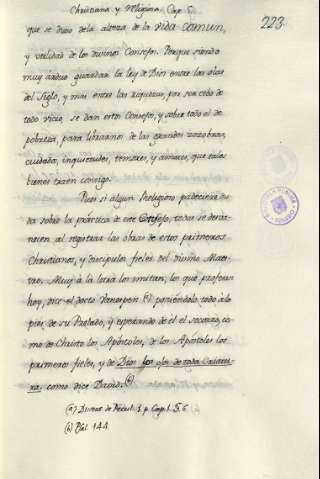 Christiana y Religiosa. Cap. 5.
223
que se dixo de la alteza de la vida comun,
y utilidad de los divinos Consejos. Porque siendo
muy arduo guardar la ley de Dios entre las olas
del Siglo, y mas entre las riquezas, por ser cebo de
todo vicio, se dan estos Consejos, y sobre todo el de
pobreza, para librarnos de las grandes zozobras,
cuidados, inquietudes, temores, y ansias, que tales
bienes traen consigo.
Pues si algun Religioso padeciera du
da sobre la práctica de este Consejo, todas se desva-
necen al registrar las obras de estos primeros
Christianos, y discipulos fieles del divino Maes-
tro. Muy à la letra los imitan, los que profesan
hoy, dice el docto Vanespen (a) poniendolo todo à los
pies de su Prelado, y esperando de él el socorro, co
mo de Christo los Apóstoles, de los Apóstoles los
primeros fieles, y de Dios los ojos de toda Criatu-
ra, como dice David. (b)
(a) 1. p. Cap. 1. §. 6
(b) Psal. 144.